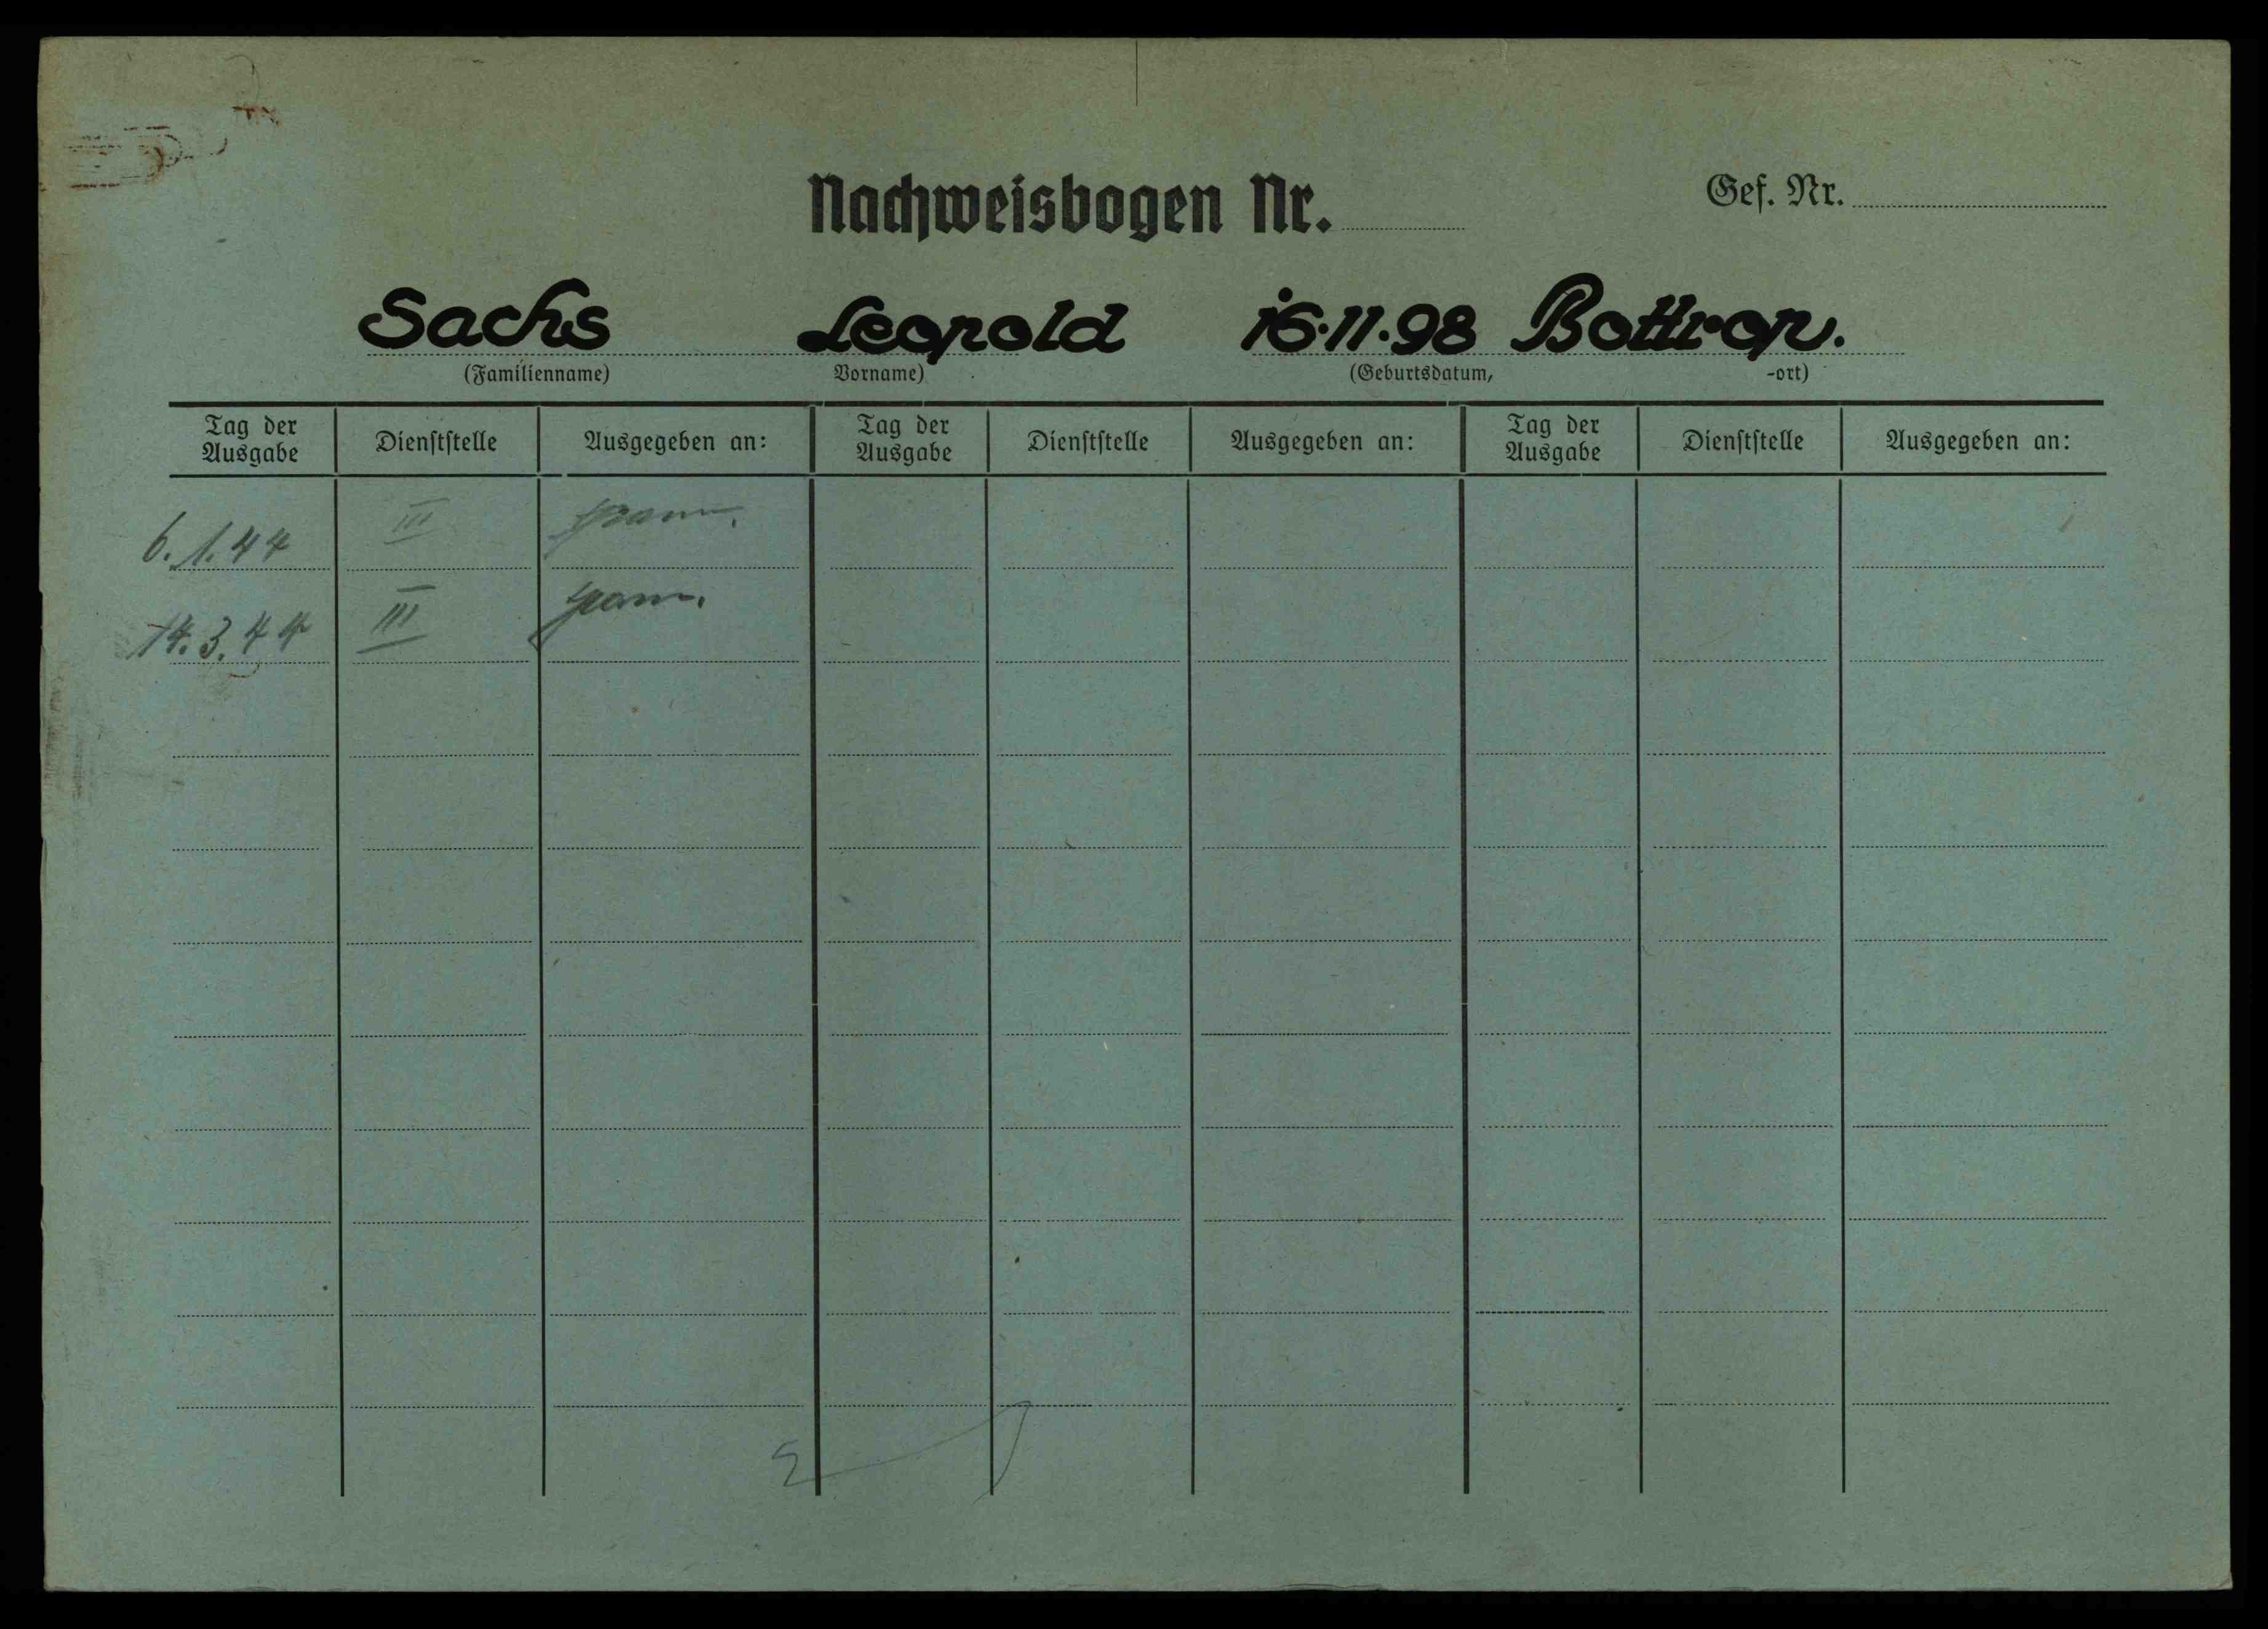 Nachweisbogen Nr.
Gef. Nr.
Sachs Leopold 16.11.98 Bottrop.
(Familienname) Vorname) (Geburtsdatum, -ort)
Tag der Ausgabe Dienststelle Ausgegeben an: Tag der Ausgabe Dienststelle Ausgegeben an: Tag der Ausgabe Dienststelle Ausgegeben an:
6.1.44 III
14.3.44 III